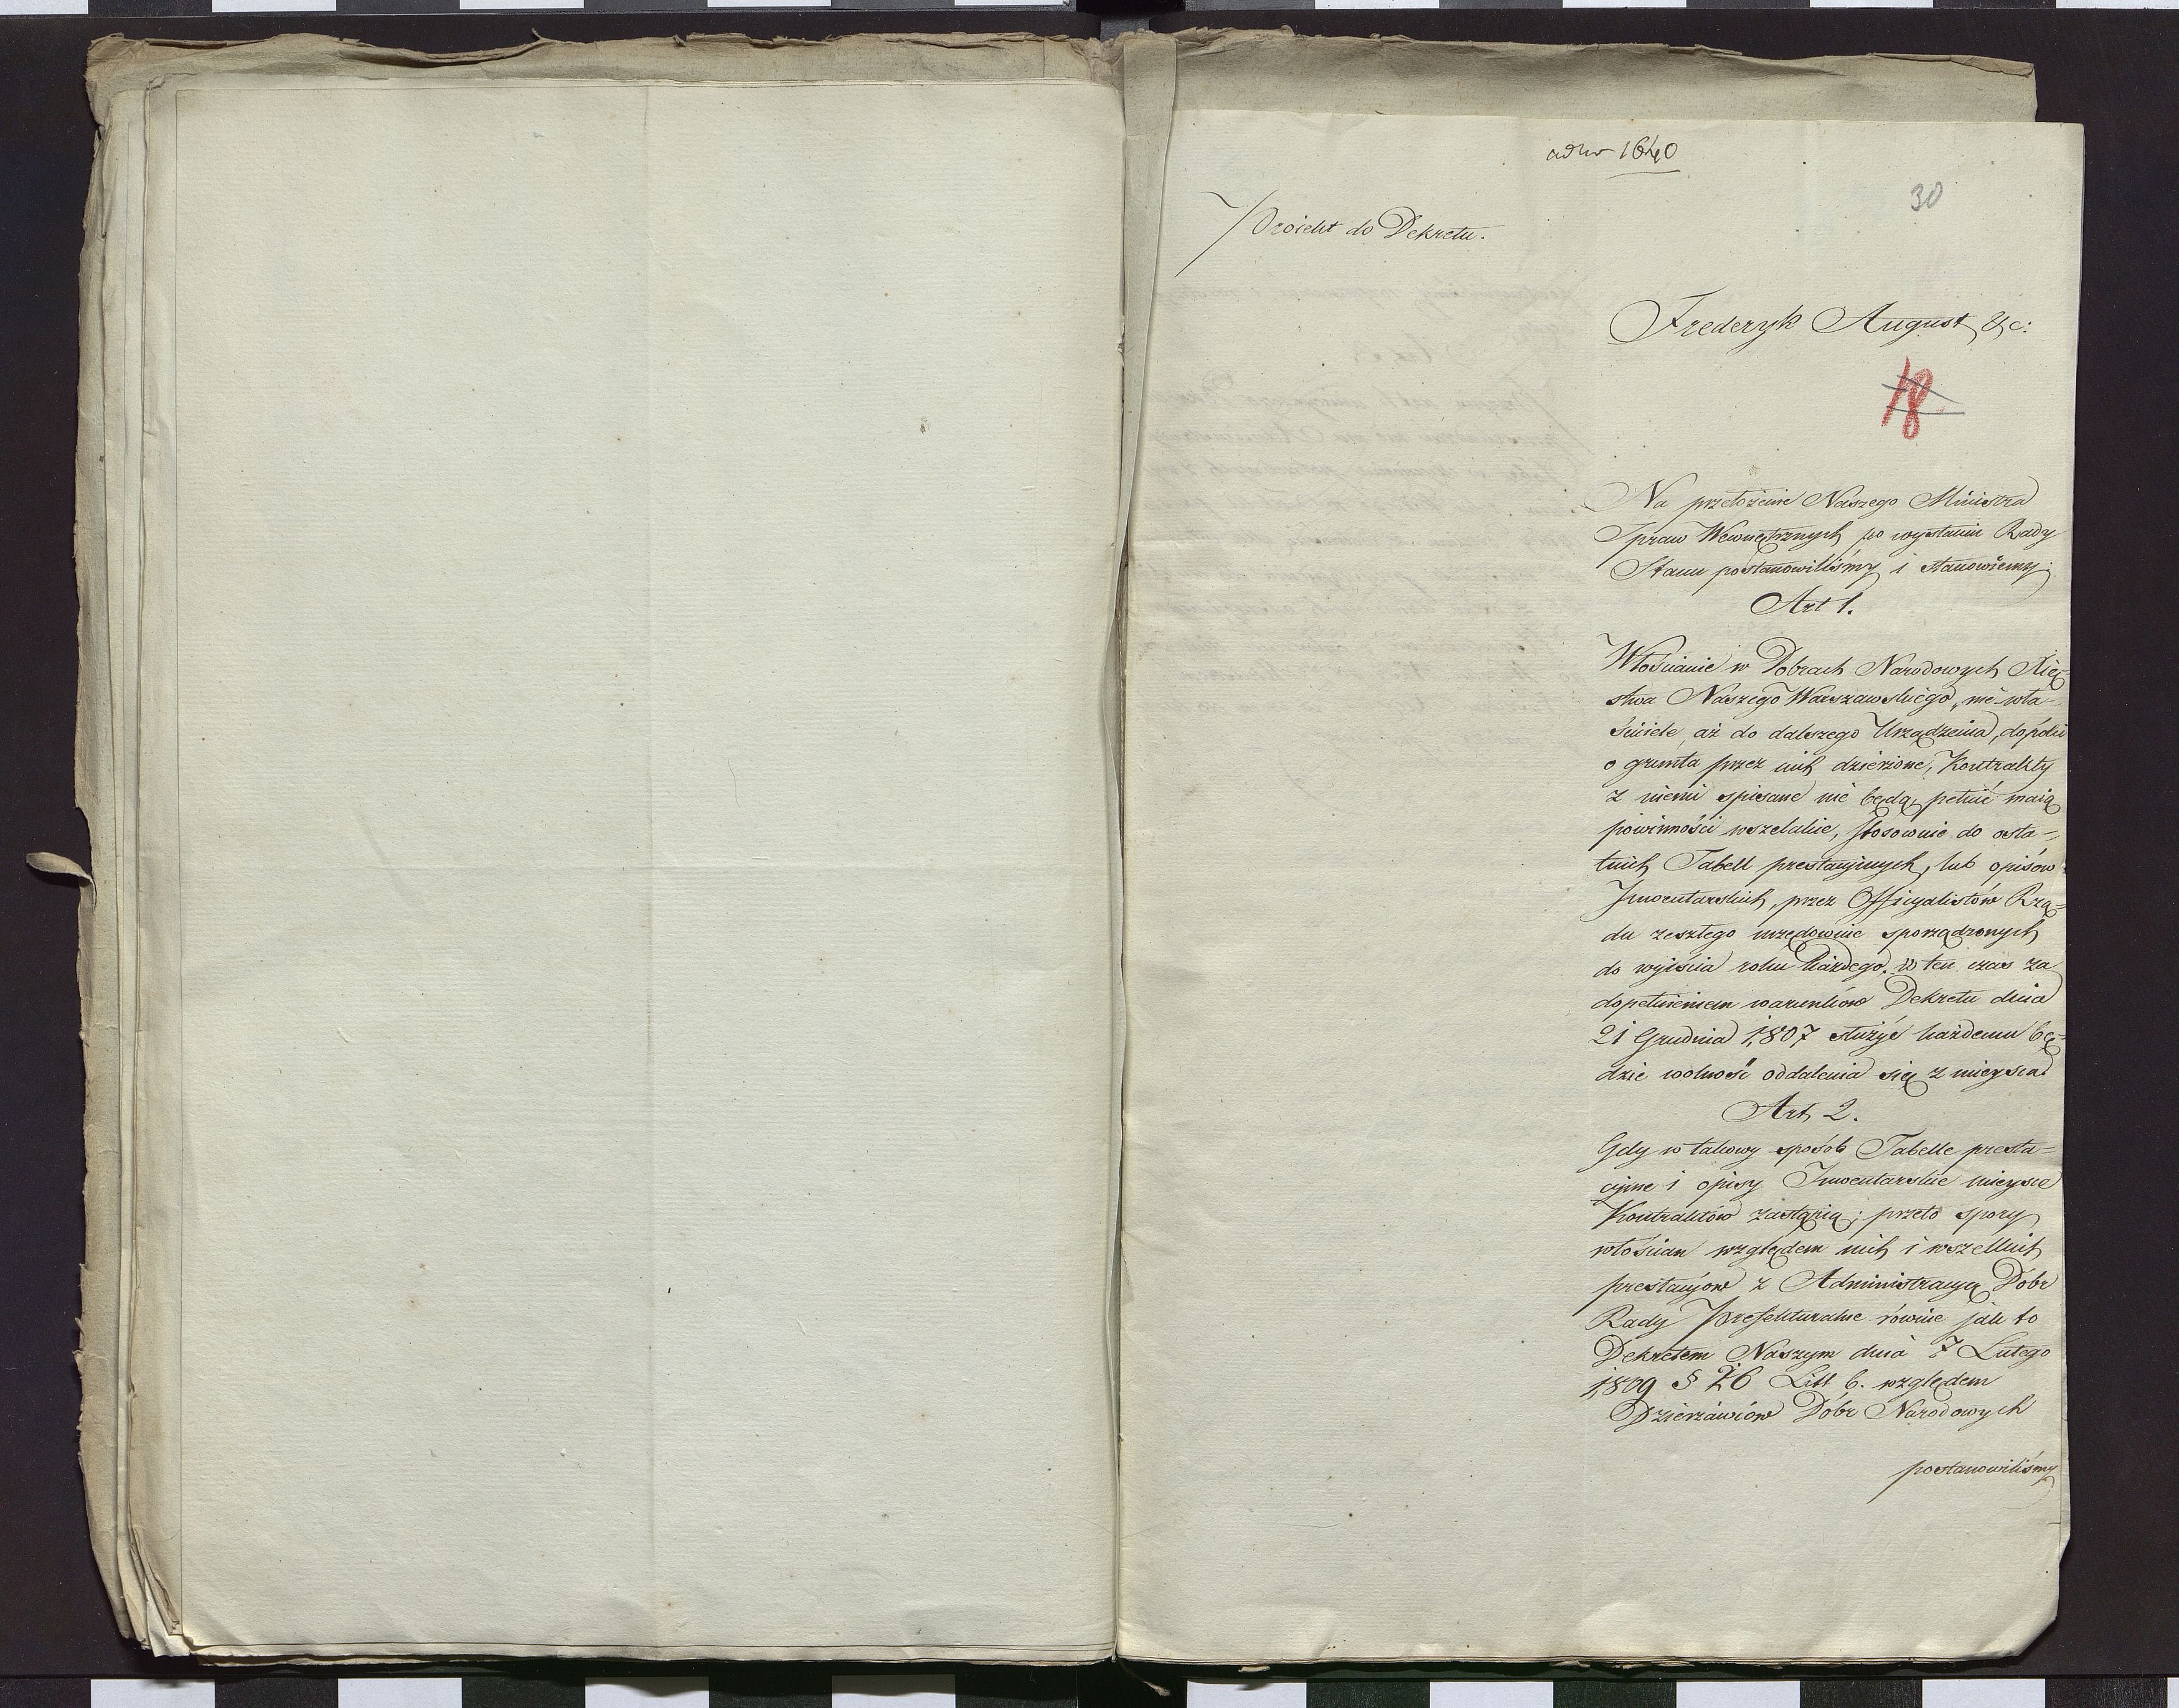 ad nr 1640
30
Proiekt do Dekretu.
Frederyk August &c:
18
Na przełożenie Naszego Ministra
Spraw Wewnętrznych po wysłaniu Rady
Stanu postanowiliśmy i stanowiemy.
Art 1.
Włościanie w Dobrach Narodowych Xię-
stwa Naszego Warszawskiego, nie-wła-
ściciele, aż do dalszego Urządzenia, dopóki
o grunta przez nich dzierżone, Kontrakty
z niemi spisane nie będą, pełnić maią
powinności wszelakie, stosownie do osta-
tnich Tabell prestacyjnych, lub opisów
Inwentarskich, przez Officyalistów Rzą-
du zeszłego urzędownie sporządzonych
do wyjścia roku każdego. W ten czas za
dopełnieniem warunków Dekretu dnia
21 Grudnia 1807 służyć każdemu bę-
dzie wolność oddalenia się z mieysca.
Art. 2.
Gdy w takowy sposób Tabelle presta-
cyjne i opisy Inwentarskie mieysce
Kontraktów zastąpią; przeto spory
włościan względem nich i wszelkich
prestacyow z Administracyą Dobr
Rady Prefekturalne równie jak to
Dekretem Naszym dnia 7 Lutego
1809 § 26 Litt b. względem
Dzierżawców Dóbr Narodowych
postanowiliśmy